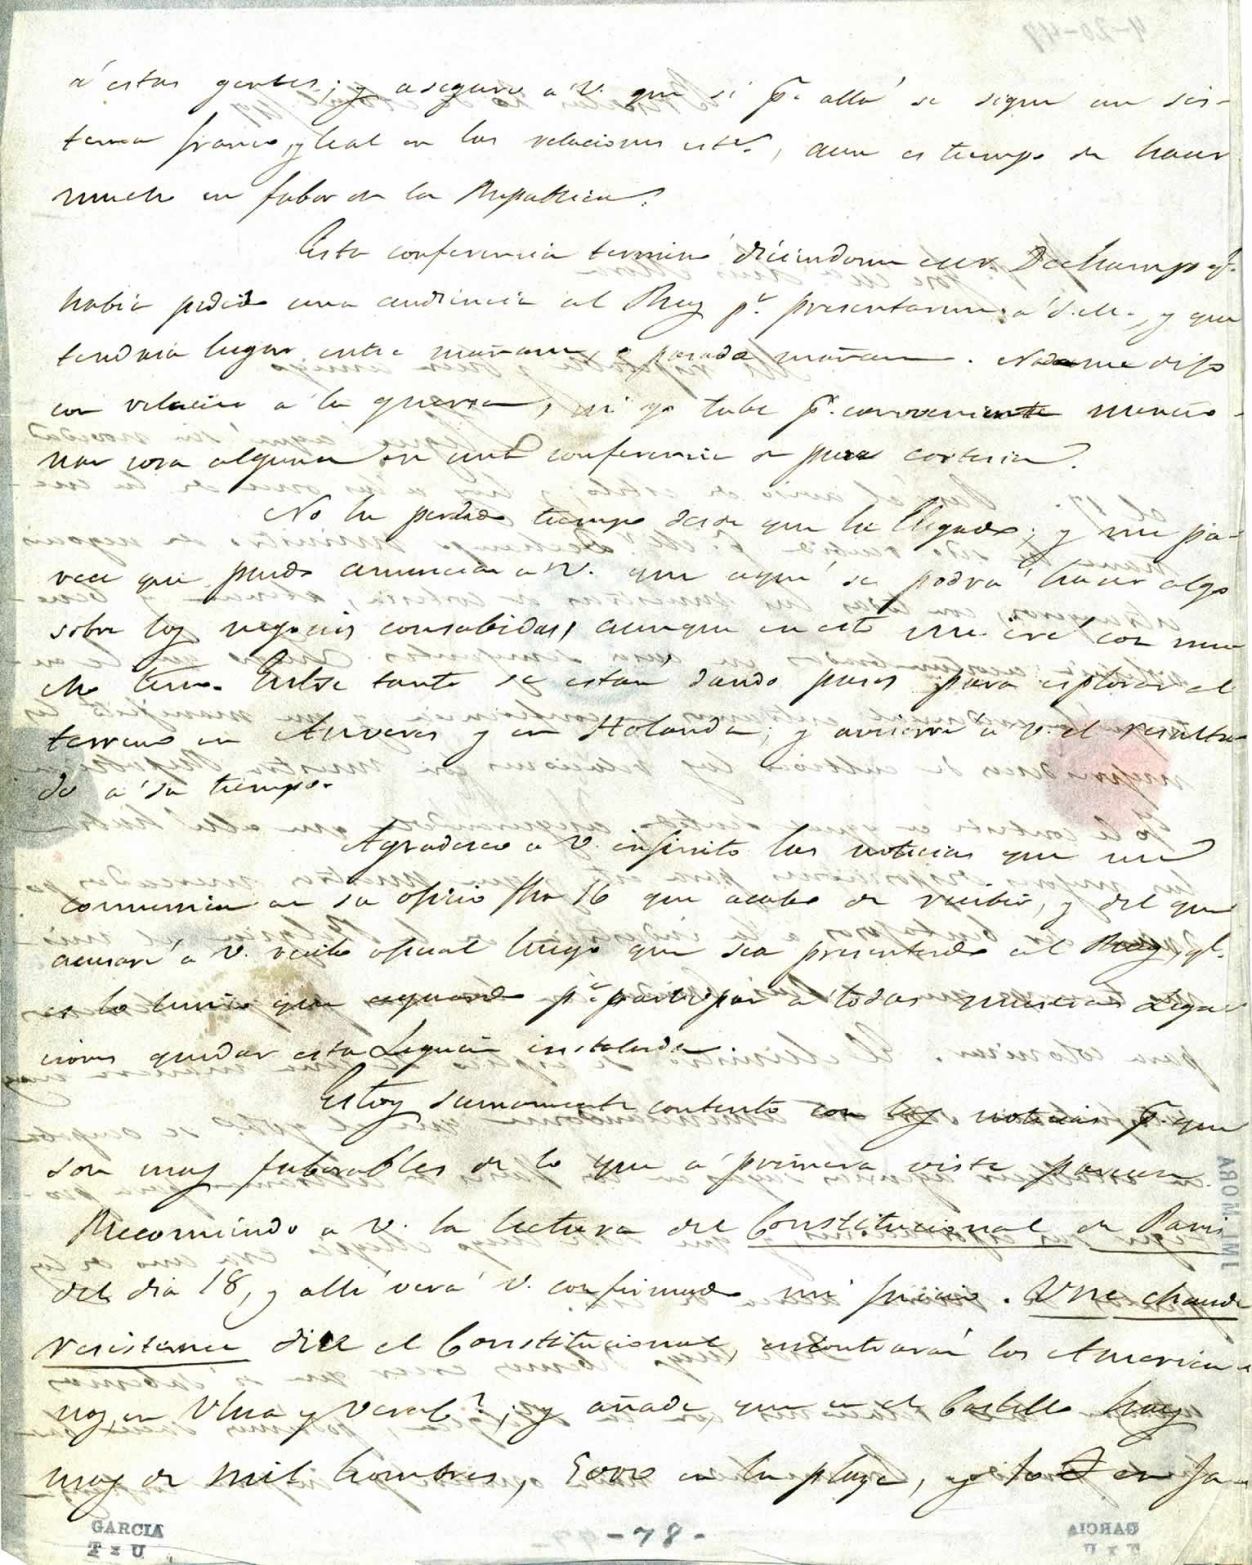 á estas gentes; y aseguro á V. que si p.r allá se sigue un sis-
tema franco, y leal en las relaciones ext.s, aun es tiempo de hacer
mucho en fabor de la Republica.
Esta conferencia terminó diciendome M.r Dechamps q.e
habia pedido una audiencia al Rey p.a presentarme á S.M., y que
tendria lugar entre mañana, o pasado mañana. Nada me dijo
con relacion á la guerra, ni yo tube p.r conveniente mencio-
nar cosa alguna en una conferencia de pura cortesia.
No he perdido tiempo desde que he llegado; y me pa-
rece que puedo anunciar a V. que aqui se podrá hacer algo
sobre los negocios consabidos, aunque en esto me iré con mu-
cho tino. Entre tanto se estan dando pasos para esplorar el
terreno en Anveres y en Holanda; y avisaré á V. el resulta-
do á su tiempo.
Agradesco a V. infinito las noticias que me
comunica en su oficio Nro 16 que acabo de recibir, y del que
acusaré á V. recibo oficial luego que sea presentado al Rey, q.e
es lo unico que aguardo p.a participar á todas nuestras Lega-
ciones quedar esta Legacion instalada.
Estoy sumamente contento con las noticias p.r que
son mas faborables de lo que á primera vista parecen.
Recomiendo a V. la lectura del Constitucional de Paris
del dia 18, y allí verá V. confirmado mi juicio. Une chaude
resistance dice el Constitucional, encontrarán los America-
nos, en Ulua y Veracruz; y añade que en el Castillo hay
mas de mil hombres, 5000 en la plaza, y en Ja-
4-20-47
JML MORA
GARCIA
-78-
GARCIA